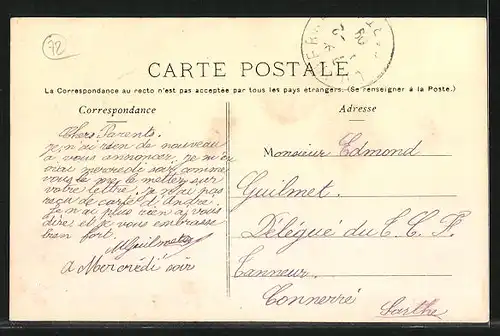 72
CARTE POSTALE
La Correspondance au recto n'est pas acceptée par tous les pays étrangers. (Se renseigner à la Poste.)
Correspondance
Chers Parents.
Je n'ai rien de nouveau
à vous annoncer. Je m'en
irai mercredi soir comme
vous me le mettez sur
votre lettre. Je n'ai pas
reçu de carte d'André.
Je n'ai plus rien à vous
dire et je vous embrasse
bien fort.
MGuilmet
à Mercredi soir
Adresse
Monsieur Edmond
Guilmet
Délégué du T. C. F.
Tanneur
Connerré
Sarthe